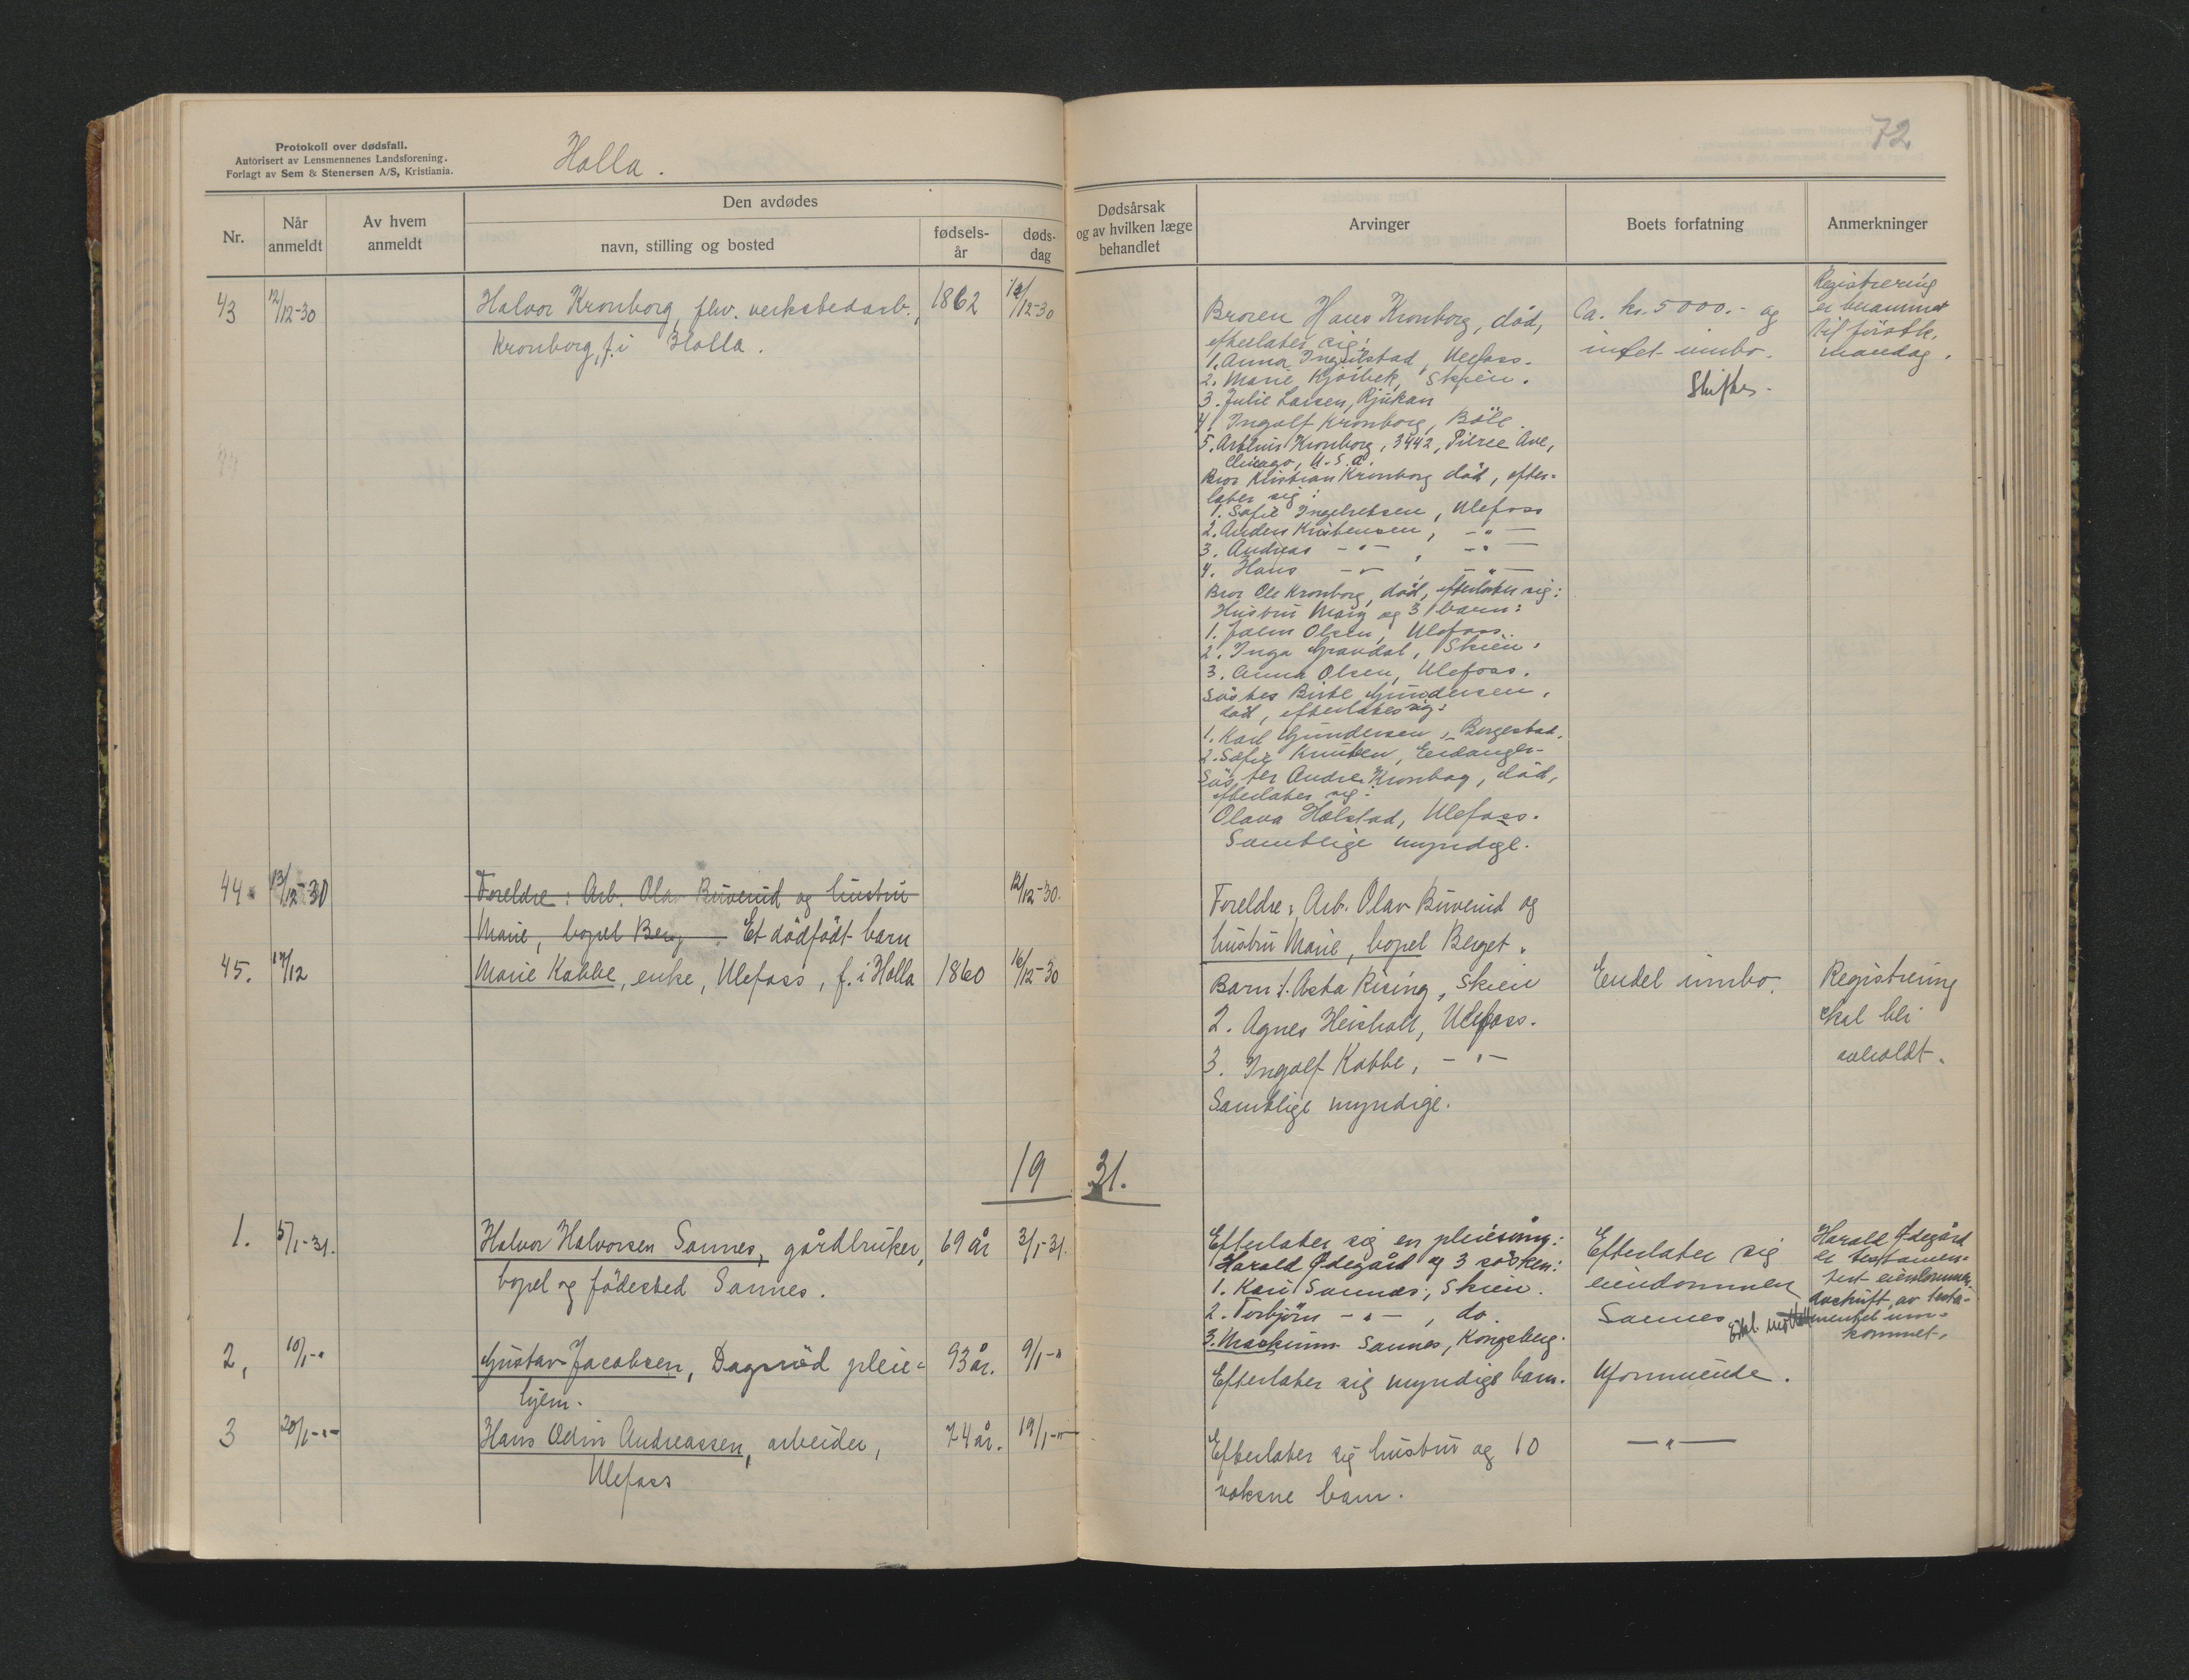 Protokoll over dødsfall.
Autorisert av Lensmennenes Landsforening.
Forlagt av Sem & Stenersen A/S, Kristiania.
Holla.
72
Nr.
Når anmeldt
Av hvem anmeldt
Den avdødes
navn, stilling og bosted
fødselsår
dødsdag
Dødsårsak og av hvilken læge behandlet
Arvinger
Boets forfatning
Anmerkninger
43 12/12-30 Halvor Kronborg, fhv. verksbedarb., 1862 12/12-30
Kronborg, f. i Holla.
Broren Hans Kronborg, död,
efterlater sig:
1. Anna Ingulstad, Ulefoss.
2. Marie Kjörbek, Skien.
3. Julie Larsen, Rjukan
4. Ingolf Kronborg, Böle.
5. Kronborg, 3442, Pierce Ave,
Chicago, U.S.a.
Bror Kristian Kronborg död, efter-
later sig:
1. Sofie Ingebretsen, Ulefoss
2. Anders Kristensen, -"-
3. Andreas -"- , -"-
4. Hans -"- , -"-
Bror Ole Kronborg, död, efterlater sig:
Hustru Mary og 3 barn:
1. John Olsen, Ulefoss.
2. Inga Gravdal, Skien.
3. Anna Olsen, Ulefoss.
Söster Birte Gundersen,
död, efterlater sig:
1. Karl Gundersen, Borgestad.
2. Sofie Knutsen, Eidanger.
Söster Andrea Kronborg, död,
efterlater sig:
Olava Holstad, Ulefoss.
Samtlige myndige.
Ca. kr. 5000.- og
intet innbo.
Skiftes.
Registrering
er berammet
til förstk.
mandag.
44. 13/12-30 Foreldre: Arb. Olav Buverud og hustru 12/12-30.
Marie, bopel Berg. Et dödfödt barn
Foreldre: Arb. Olav Buverud og
hustru Marie, bopel Berget.
45. 17/12 Marie Kabbe, enke, Ulefoss, f. i Holla 1860 16/12-30
Barn 1. Asta Rising, Skien
2. Agnes Heisholt, Ulefoss.
3. Ingolf Kabbe, -"-
Samtlige myndige.
Endel innbo.
Registrering
skal bli
avholdt.
19 31.
1. 5/1-31. Halvor Halvorsen Sannes, gårdbruker, 69 år 3/1-31.
bopel og födested Sannes.
Efterlater sig en pleiesönn:
Harald Ødegård og 3 sösken:
1. Kari Sannes, Skien.
2. Torbjörn -"- , do.
3. Sannes, Kongsberg.
Efterlater sig
eiendommen
Sannes
Harald Ødegård
er testamen-
tert eiendommen.
Avskrift av testa-
mentet inn-
kommet.
2, 10/1-" Gustav Jacobsen, Dagsrud pleie- 93 år. 9/1-"
hjem.
Efterlater sig myndige barn.
Uformuende.
3 20/1-"- Hans Odin Andreassen, arbeider, 74 år. 19/1-"-
Ulefoss
Efterlater sig hustru og 10
voksne barn.
-"-